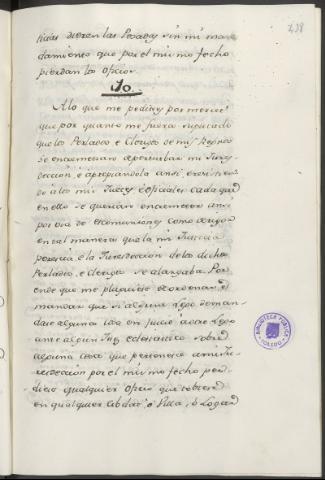 238
ticias dieren las Posadas sin mi man
damiento que por el mismo fecho
pierdan los oficios
10.
A lo que me pedistes por merced
que por quanto me fuera suplicado
que los Perlados e Clerigos de mis Reynos
se entremetian a perturbar mi Juris
deccion, e apropiandola ansi e resistien
do a los mis Jueces e oficiales cada que
en ello se querian entremeter ansi
por via de escomuniones como de
en tal manera que la mi Justicia
perecia e la Jurisdeccion de los dichos
Perlados, e Clerigos se alargaba Por
ende que me pluguiese de ordenar e
mandar que si algun Lego deman
dase alguna cosa en Juicio a otro Lego
ante algun Juez eclesiastico sobre
alguna cosa que pertenezca a mi Ju
resdeccion por el mismo fecho per
diese qualquier oficio que tobiere
en qualquier cibdad, o Villa, o Logar
BIBLIOTECA PUBLICA
TOLEDO